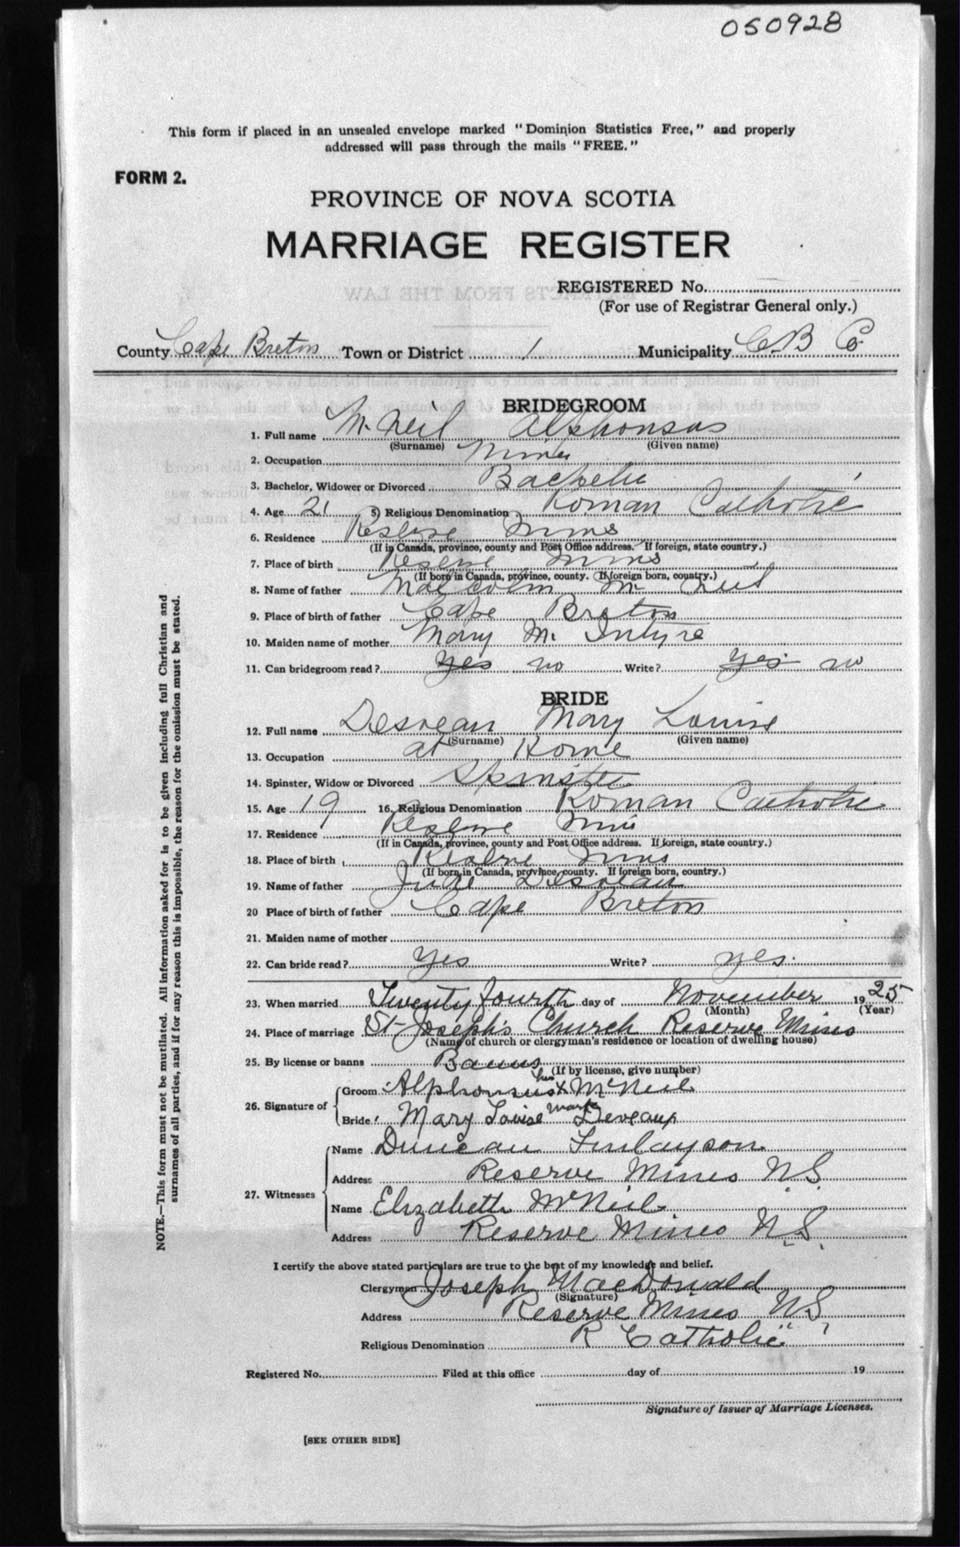 050928
This form if placed in an unsealed envelope marked "Dominion Statistics Free," and properly
addressed will pass through the mails "FREE."
FORM 2.
PROVINCE OF NOVA SCOTIA
MARRIAGE REGISTER
REGISTERED No.
(For use of Registrar General only.)
County Cape Breton Town or District 1 Municipality C.B Co
BRIDEGROOM
1. Full name McNeil Alphonsus
(Surname) (Given name)
2. Occupation Miner
3. Bachelor, Widower or Divorced Bachelor
4. Age 21 5) Religious Denomination Roman Catholic
6. Residence Reserve Mines
(If in Canada, province, county and Post Office address. If foreign, state country.)
7. Place of birth Reserve Mines
(If born in Canada, province, county. If foreign born, country.)
8. Name of father Malcolm McNeil
9. Place of birth of father Cape Breton
10. Maiden name of mother Mary McIntyre
11. Can bridegroom read? yes no Write? yes no
BRIDE
12. Full name Desveau Mary Louise
(Surname) (Given name)
13. Occupation at Home
14. Spinster, Widow or Divorced Spinster
15. Age 19 16. Religious Denomination Roman Catholic
17. Residence Reserve Mines
(If in Canada, province, county and Post Office address. If foreign, state country.)
18. Place of birth Reserve Mines
(If born in Canada, province, county. If foreign born, country.)
19. Name of father Jude Desveau
20 Place of birth of father Cape Breton
21. Maiden name of mother
22. Can bride read? yes Write? yes.
23. When married Twenty fourth day of November 1925
(Month) (Year)
24. Place of marriage St-Joseph's Church Reserve Mines
(Name of church or clergyman's residence or location of dwelling house)
25. By license or banns Banns
(If by license, give number)
26. Signature of
Groom Alphonsus his X mark McNeil
Bride Mary Louise Deveaux
27. Witnesses
Name Duncan Finlayson
Address Reserve Mines N.S.
Name Elizabeth McNeil
Address Reserve Mines N.S.
I certify the above stated particulars are true to the best of my knowledge and belief.
Clergyman Joseph MacDonald
(Signature)
Address Reserve Mines N.S.
Religious Denomination R Catholic
Registered No. Filed at this office day of 19
Signature of Issuer of Marriage Licenses.
[SEE OTHER SIDE]
NOTE.—This form must not be mutilated. All information asked for is to be given including full Christian and
surnames of all parties, and if for any reason this is impossible, the reason for the omission must be stated.